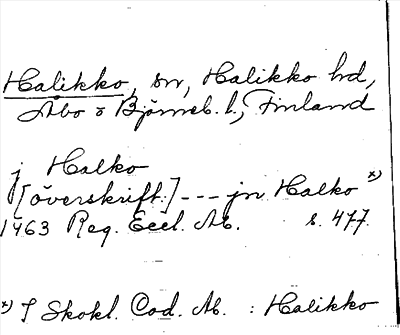 Halikko, sn, Halikko hd,
Åbo o Björneb. l., Finland
j Halko
[överskrift:] --- jn Halko x)
1463 Reg. Eccl. Ab. s. 477.
x) I Skokl. Cod. Ab. : Halikko